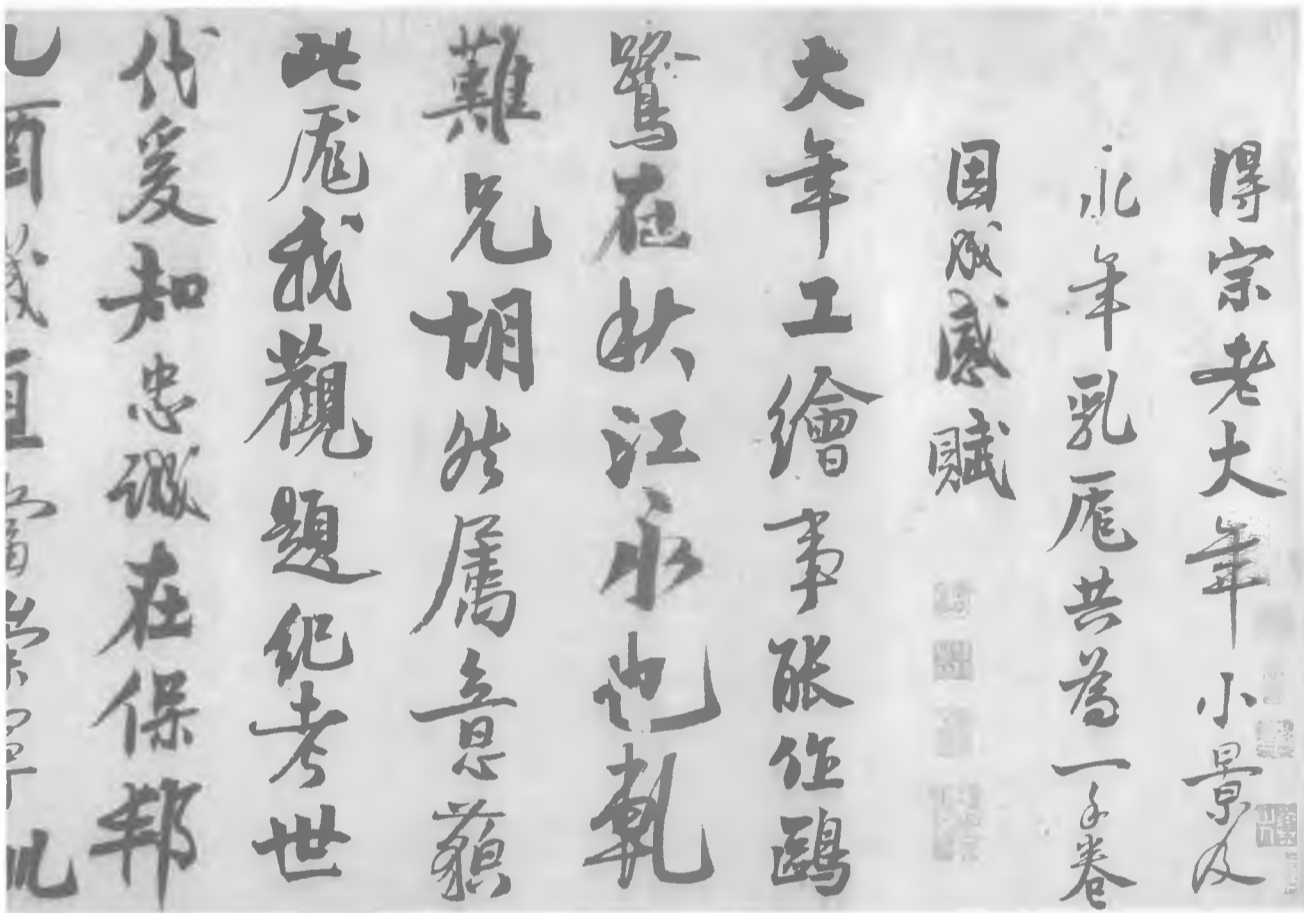 得宗老大年小景及
永年乳厖共為一手卷
因成感賦
大年工繪事能作鷗
鷺在秋江永也孰
難兄胡然屬意藐
此厖我觀題紀考世
代爰知忠誠在保邦
酉